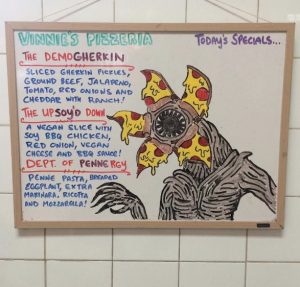 VINNIE'S PIZZERIA
TODAY'S SPECIALS...
THE DEMOGHERKIN
SLICED GHERKIN PICKLES,
GROUND BEEF, JALAPENO,
TOMATO, RED ONIONS AND
CHEDDAR WITH RANCH!
THE UPSOY'D DOWN
A VEGAN SLICE WITH
SOY BBQ CHICKEN,
RED ONION, VEGAN
CHEESE AND BBQ SAUCE!
DEPT. OF PENNE RGY
PENNE PASTA, BREADED
EGGPLANT, EXTRA
MARINARA, RICOTTA
AND MOZZARELLA!